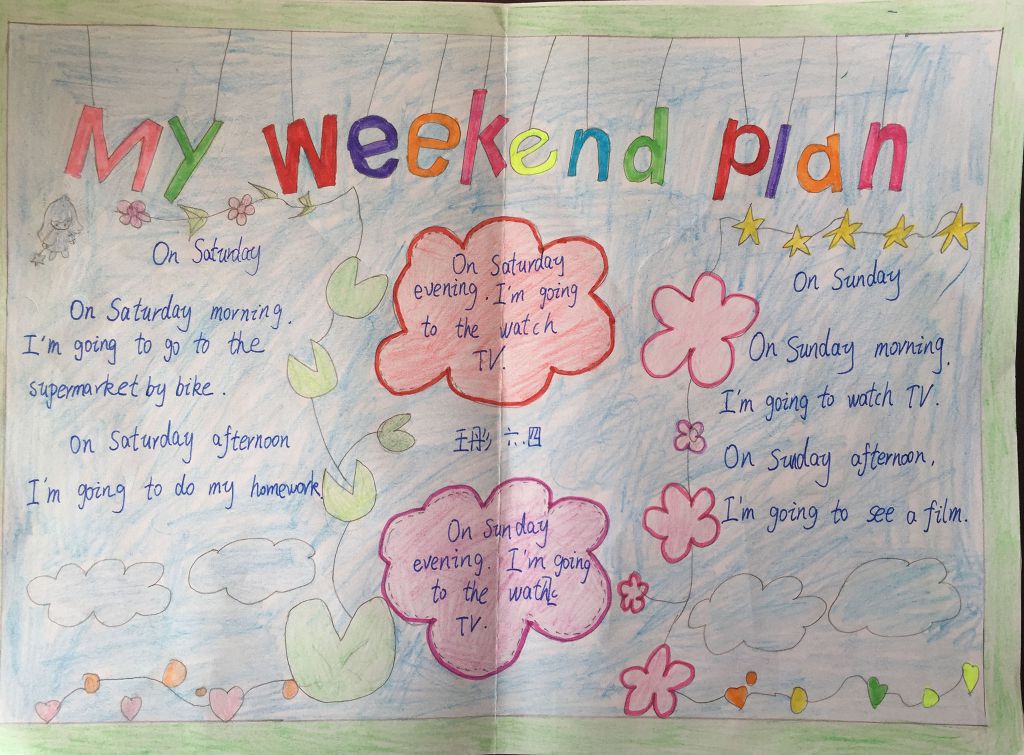 My weekend plan
On Saturday
On Saturday morning.
I'm going to go to the
supermarket by bike.
On Saturday afternoon
I'm going to do my homework.
On Saturday
evening. I'm going
to the watch
TV.
王彤 六.四
On Sunday
evening. I'm going
to the
TV.
On Sunday
On Sunday morning.
I'm going to watch TV.
On Sunday afternoon.
I'm going to see a film.